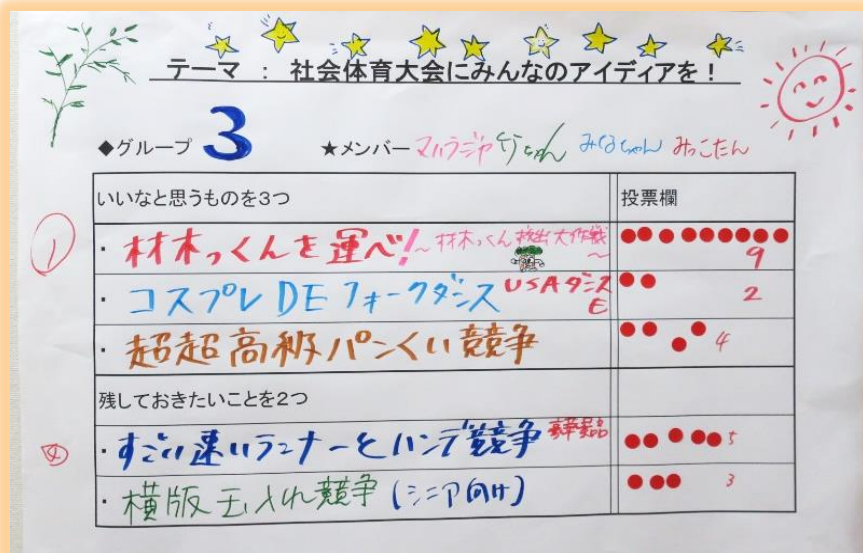 テーマ : 社会体育大会にみんなのアイディアを!
◆グループ 3 ★メンバー マハラジャ けうちゃん みなちゃん みっこたん
いいなと思うものを3つ 投票欄
① ・材木っくんを運べ!～材木っくん救出大作戦～ 9
・コスプレDEフォークダンス USAダンス 2
・超超高級パンくい競争 4
残しておきたいことを2つ
② ・すごい速いランナーとハンデ競争 豪華景品 5
・横版玉入れ競争(シニア向け) 3